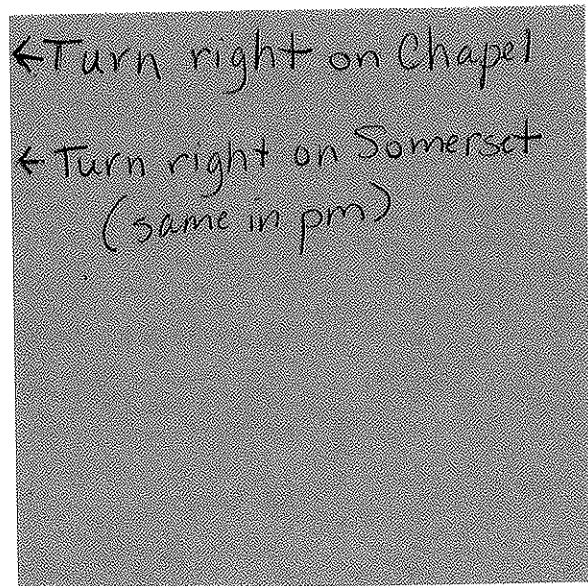 ←Turn right on Chapel
← Turn right on Somerset
(same in pm)